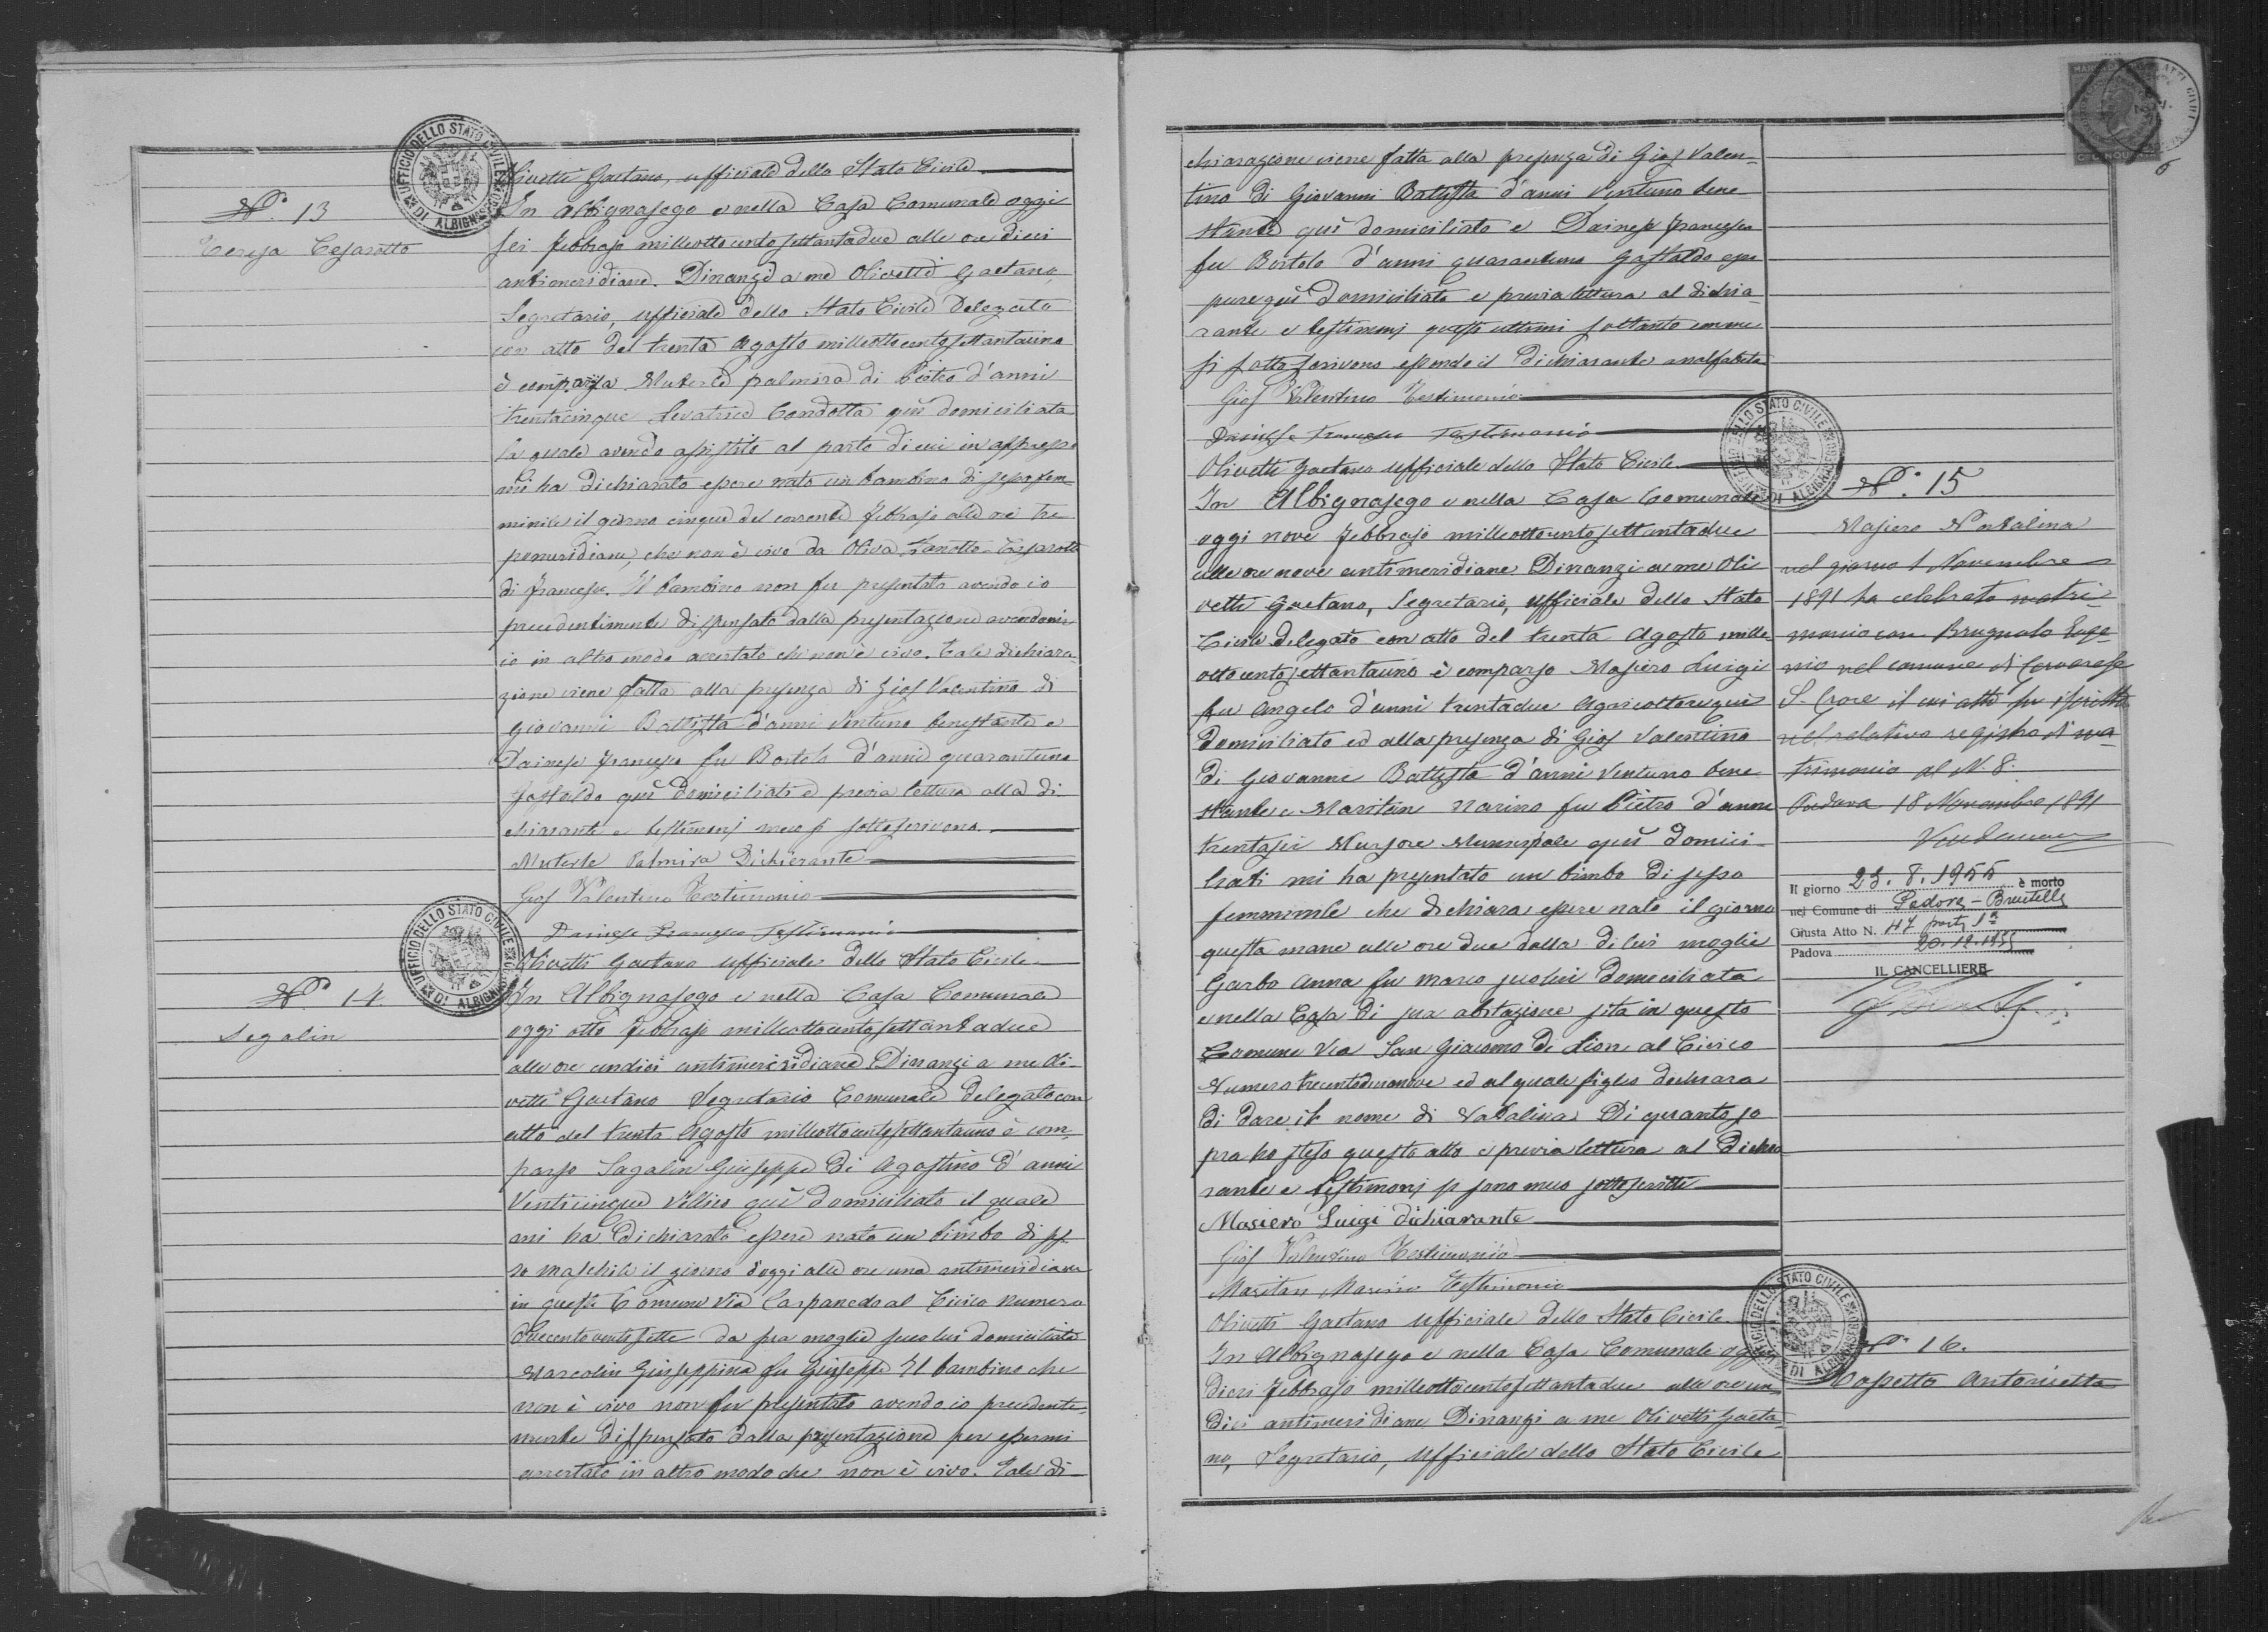 Olivetti Gaetano, ufficiale dello Stato Civile
N.º 13
Teresa Cesarotto
In Albignasego e nella Casa Comunale oggi
sei Febbrajo milleottocentosettantadue alle ore dieci
antimeridiane. Dinanzi a me Olivetti Gaetano,
Segretario, ufficiale dello Stato Civile delegato
con atto del trenta Agosto milleottocentosettantauno
è comparsa Muterle palmira di Pietro d'anni
trentacinque Levatrice Condotta quì domiciliata
la quale avendo assistito al parto di cui in appresso
mi ha dichiarato essere nato un bambino di sesso fem
minile il giorno cinque del corrente Febbrajo alle ore tre
pomeridiane, che non è vivo da Oliva Zanotto-Cesarotto
di Francesco. Il bambino non fu presentato avendo io
precedentemente dispensato dalla presentazione avendomi
io in altro modo accertato che non è vivo. Tale dichiara-
zione viene fatta alla presenza di Gios Valentino di
Giovanni Battista d'anni Ventuno benestante e
Dainese Francesco fu Bortolo d'anni quarantuno
Gastaldo quì domiciliati e previa lettura alla di-
chiarante e testimonj meco si sottoscrivono.
Muterle Palmira Dichiarante
Gios Valentino Testimonio
Dainese Francesco Testimonio
Olivetti Gaetano ufficiale dello Stato Civile
N.º 14
Segalin
In Albignasego e nella Casa Comunale
oggi otto Febbrajo milleottocentosettantadue
alle ore undici antimeridiane Dinanzi a me Oli-
vetti Gaetano Segretario Comunale delegato con
atto del trenta Agosto milleottocentosettantauno è com-
parso Sagalin Giuseppe di Agostino d'anni
Venticinque Villico quì domiciliato il quale
mi ha dichiarato essere nato un bimbo di ses
so maschile il giorno d'oggi alle ore una antimeridiane
in questo Comune Via Carpanedo al Civico numero
duecentoventisette da sua moglie seco lui domiciliata
Marcolin Giuseppina fu Giuseppe Il bambino che
non è vivo non fu presentato avendo io precedente-
mente dispensato dalla presentazione per essermi
accertato in altro modo che non è vivo. Tale di-
chiarazione viene fatta alla presenza di Gios Valen-
tino di Giovanni Battista d'anni Ventuno bene
stante quì domiciliato e Dainese Francesco
fu Bortolo d'anni quarantuno Gastaldo
pure quì domiciliato e previa lettura al dichia-
rante e testimonj questi ultimi soltanto
si sottoscrivono essendo il dichiarante analfabeta
Gios Valentino Testimonio
Dainese Francesco Testimonio
Olivetti Gaetano ufficiale dello Stato Civile
In Albignasego e nella Casa Comunale
oggi nove Febbrajo milleottocentosettantadue
alle ore nove antimeridiane Dinanzi a me Oli
vetti Gaetano, Segretario, ufficiale dello Stato
Civile delegato con atto del trenta Agosto mille-
ottocentosettantauno è comparso Masiero Luigi
fu Angelo d'anni trentadue Agricoltore quì
domiciliato ed alla presenza di Gios Valentino
di Giovanni Battista d'anni Ventuno bene-
stante e Maritan Marino fu Pietro d'anni
trentasei Cursore Municipale quì domici-
liati mi ha presentato un bimbo di sesso
femminile che dichiara essere nato il giorno
questa mane alle ore due dalla di lui moglie
Garbo Anna fu Marco seco lui domiciliata
e nella Casa di sua abitazione sita in questo
Comune Via San Giacomo di Lion al Civico
Numero trecentodiecinove ed al quale figlio dichiara
di dare il nome di Natalina Di quanto so
pra ho steso questo atto e previa lettura al dichia
rante e testimonj si sono meco sottoscritti
Masiero Luigi dichiarante
Gios Valentino Testimonio
Maritan Marino Testimonio
Olivetti Gaetano ufficiale dello Stato Civile
In Albignasego e nella Casa Comunale oggi
dieci Febbrajo milleottocentosettantadue alle ore un
dici antimeridiane Dinanzi a me Olivetti Gaeta-
no, Segretario, ufficiale dello Stato Civile
N.º 15
Masiero Natalina
nel giorno 1 Novembre
1891 ha celebrato matri-
monio con Brugnolo Euge
nio nel comune di Cervarese
S. Croce il cui atto fu iscritto
nel relativo registro di ma
trimonio al N. 8.
Padova 18 Novembre 1891
Il giorno 23. 8. 1955 è morto
nel Comune di Padova - Brusttelle
Giusta Atto N. 47 parte 1ª
Padova 20.12.1955
IL CANCELLIERE
N.º 16.
Antonietta
UFFICIO DELLO STATO CIVILE DI ALBIGNASEGO
6